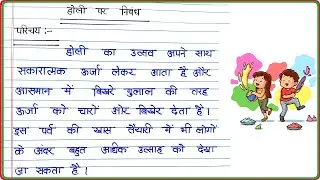 होली पर निबंध
परिचय :-
होली का उत्सव अपने साथ
सकारात्मक ऊर्जा लेकर आता है और
आसमान में बिखरे गुलाल की तरह
ऊर्जा को चारों और बिखेर देता है।
इस पर्व की खास तैयारी में भी लोगों
के अंदर बहुत अधिक उत्साह को देखा
जा सकता है।